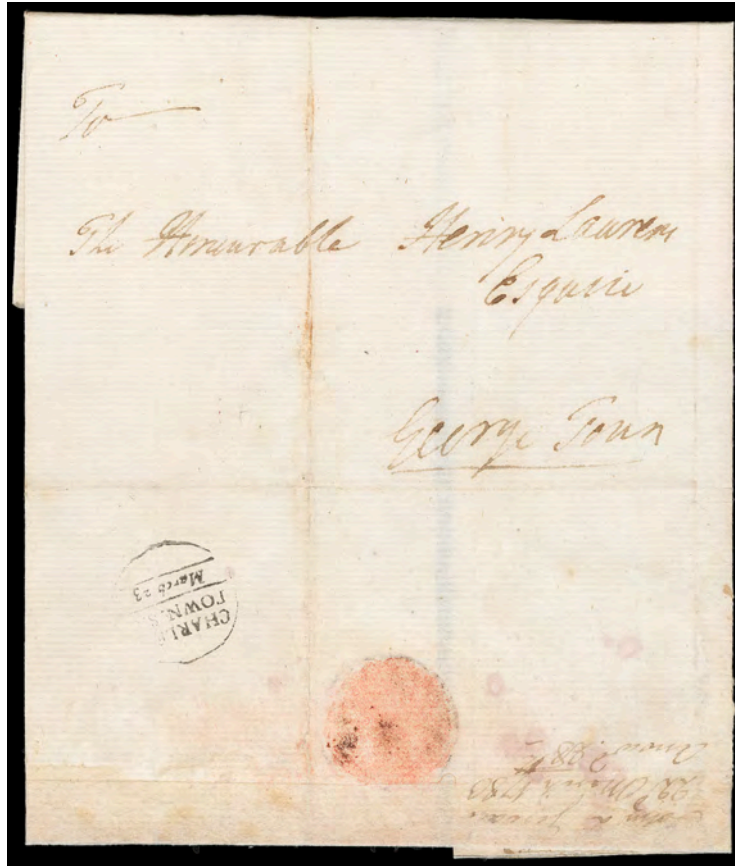 To
The Honourable Henry Laurens
Esquire
George Town
CHARLES
TOWN
March 23
23 March 1785